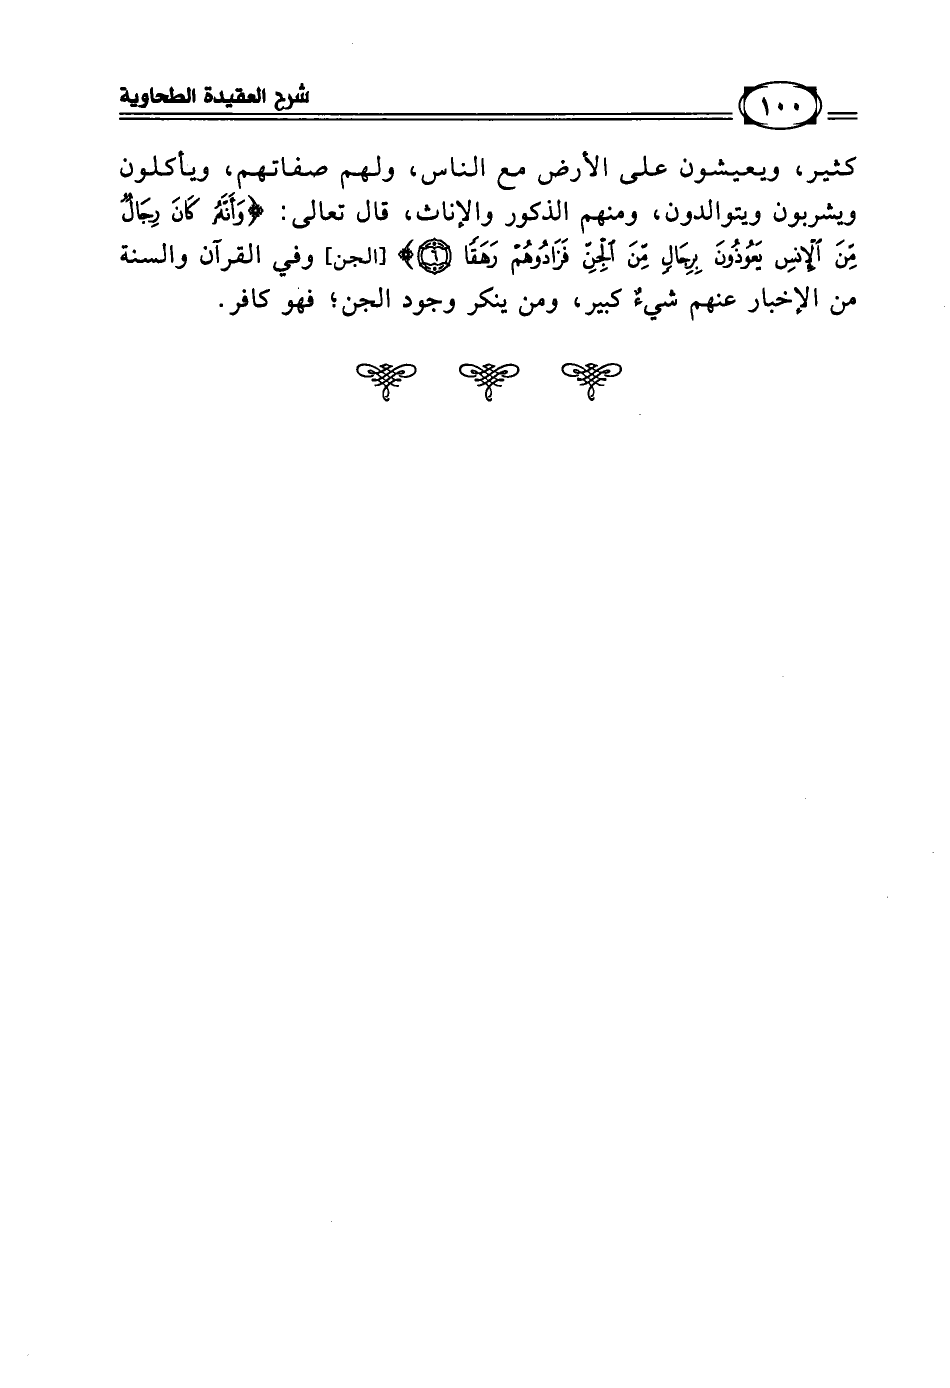 شرح العقيدة الطحاوية
١٠٠
كثير، ويعيشون على الأرض مع الناس، ولهم صفاتهم، ويأكلون
ويشربون ويتوالدون، ومنهم الذكور والإناث، قال تعالى: ﴿وَأَنَّهُۥ كَانَ رِجَالٌ
مِّنَ ٱلْإِنسِ يَعُوذُونَ بِرِجَالٍ مِّنَ ٱلْجِنِّ فَزَادُوهُمْ رَهَقًا ٦﴾ [الجن] وفي القرآن والسنة
من الإخبار عنهم شيءٌ كبير، ومن ينكر وجود الجن؛ فهو كافر.